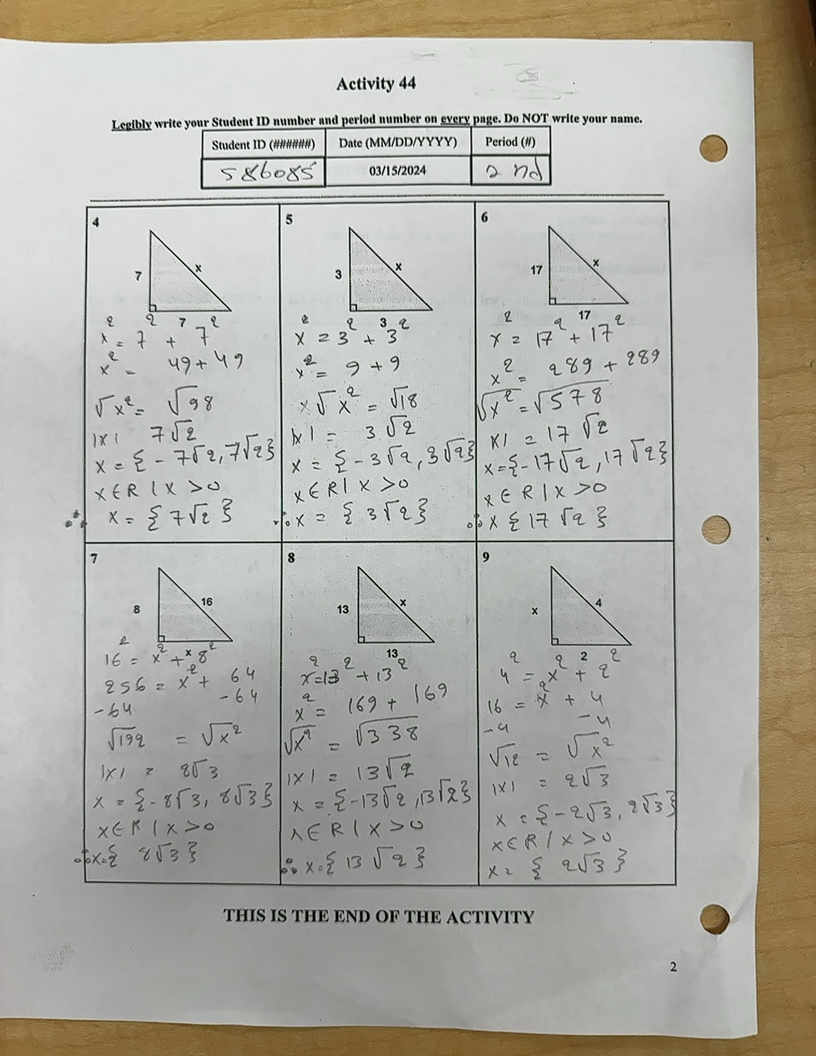 Activity 44
Legibly write your Student ID number and period number on every page. Do NOT write your name.
Student ID (######) Date (MM/DD/YYYY) Period (#)
586085 03/15/2024 2 nd
4
7
x
7
x² = 7² + 7²
x² = 49 + 49
√x² = √98
|x| 7√2
x = {-7√2, 7√2}
x ∈ R | x > 0
∴ x = {7√2}
5
3
x
3
x² = 3² + 3²
x² = 9 + 9
x √x² = √18
|x| = 3√2
x = {-3√2, 3√2}
x ∈ R | x > 0
∴ x = {3√2}
6
17
x
17
x² = 17² + 17²
x² = 289 + 289
√x² = √578
x| = 17√2
x = {-17√2, 17√2}
x ∈ R | x > 0
∴ x {17√2}
7
8
16
x
16² = x² + 8²
256 = x² + 64
-64 -64
√192 = √x²
|x| = 8√3
x = {-8√3, 8√3}
x ∈ R | x > 0
∴ x = {8√3}
8
13
x
13
x² = 13² + 13²
x² = 169 + 169
√x² = √338
|x| = 13√2
x = {-13√2, 13√2}
x ∈ R | x > 0
∴ x = {13√2}
9
x
4
2
4² = x² + 2²
16 = x² + 4
-4 -4
√12 = √x²
|x| = 2√3
x = {-2√3, 2√3}
x ∈ R | x > 0
x = {2√3}
THIS IS THE END OF THE ACTIVITY
2